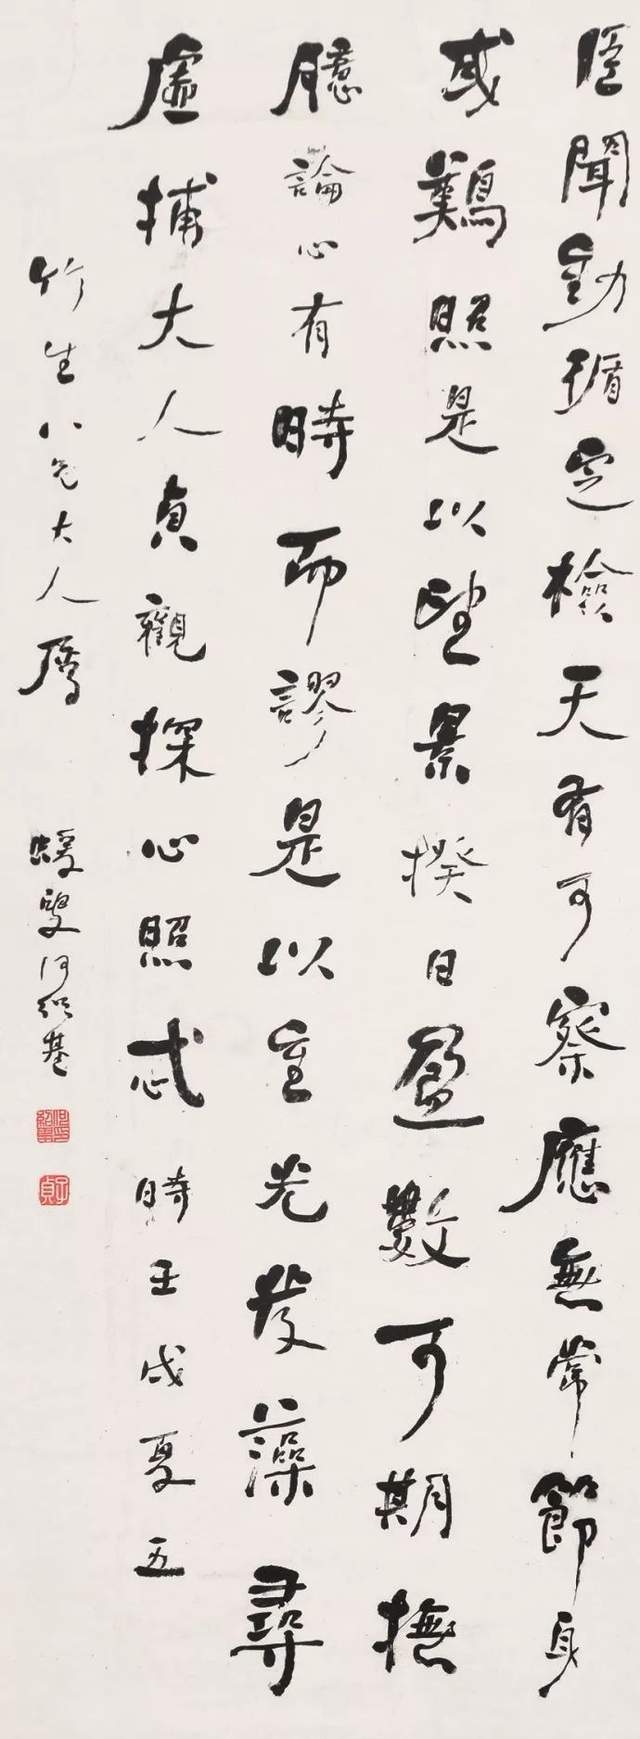 臣聞動循定檢天有可察應無常節身
或難照是以望景揆日盈數可期撫
臆論心有時而謬是以重光發藻尋
虛捕大人貞觀探心照忒時壬戌夏五
竹生八兄大人屬 蝯叟何紹基
何紹基印
子貞